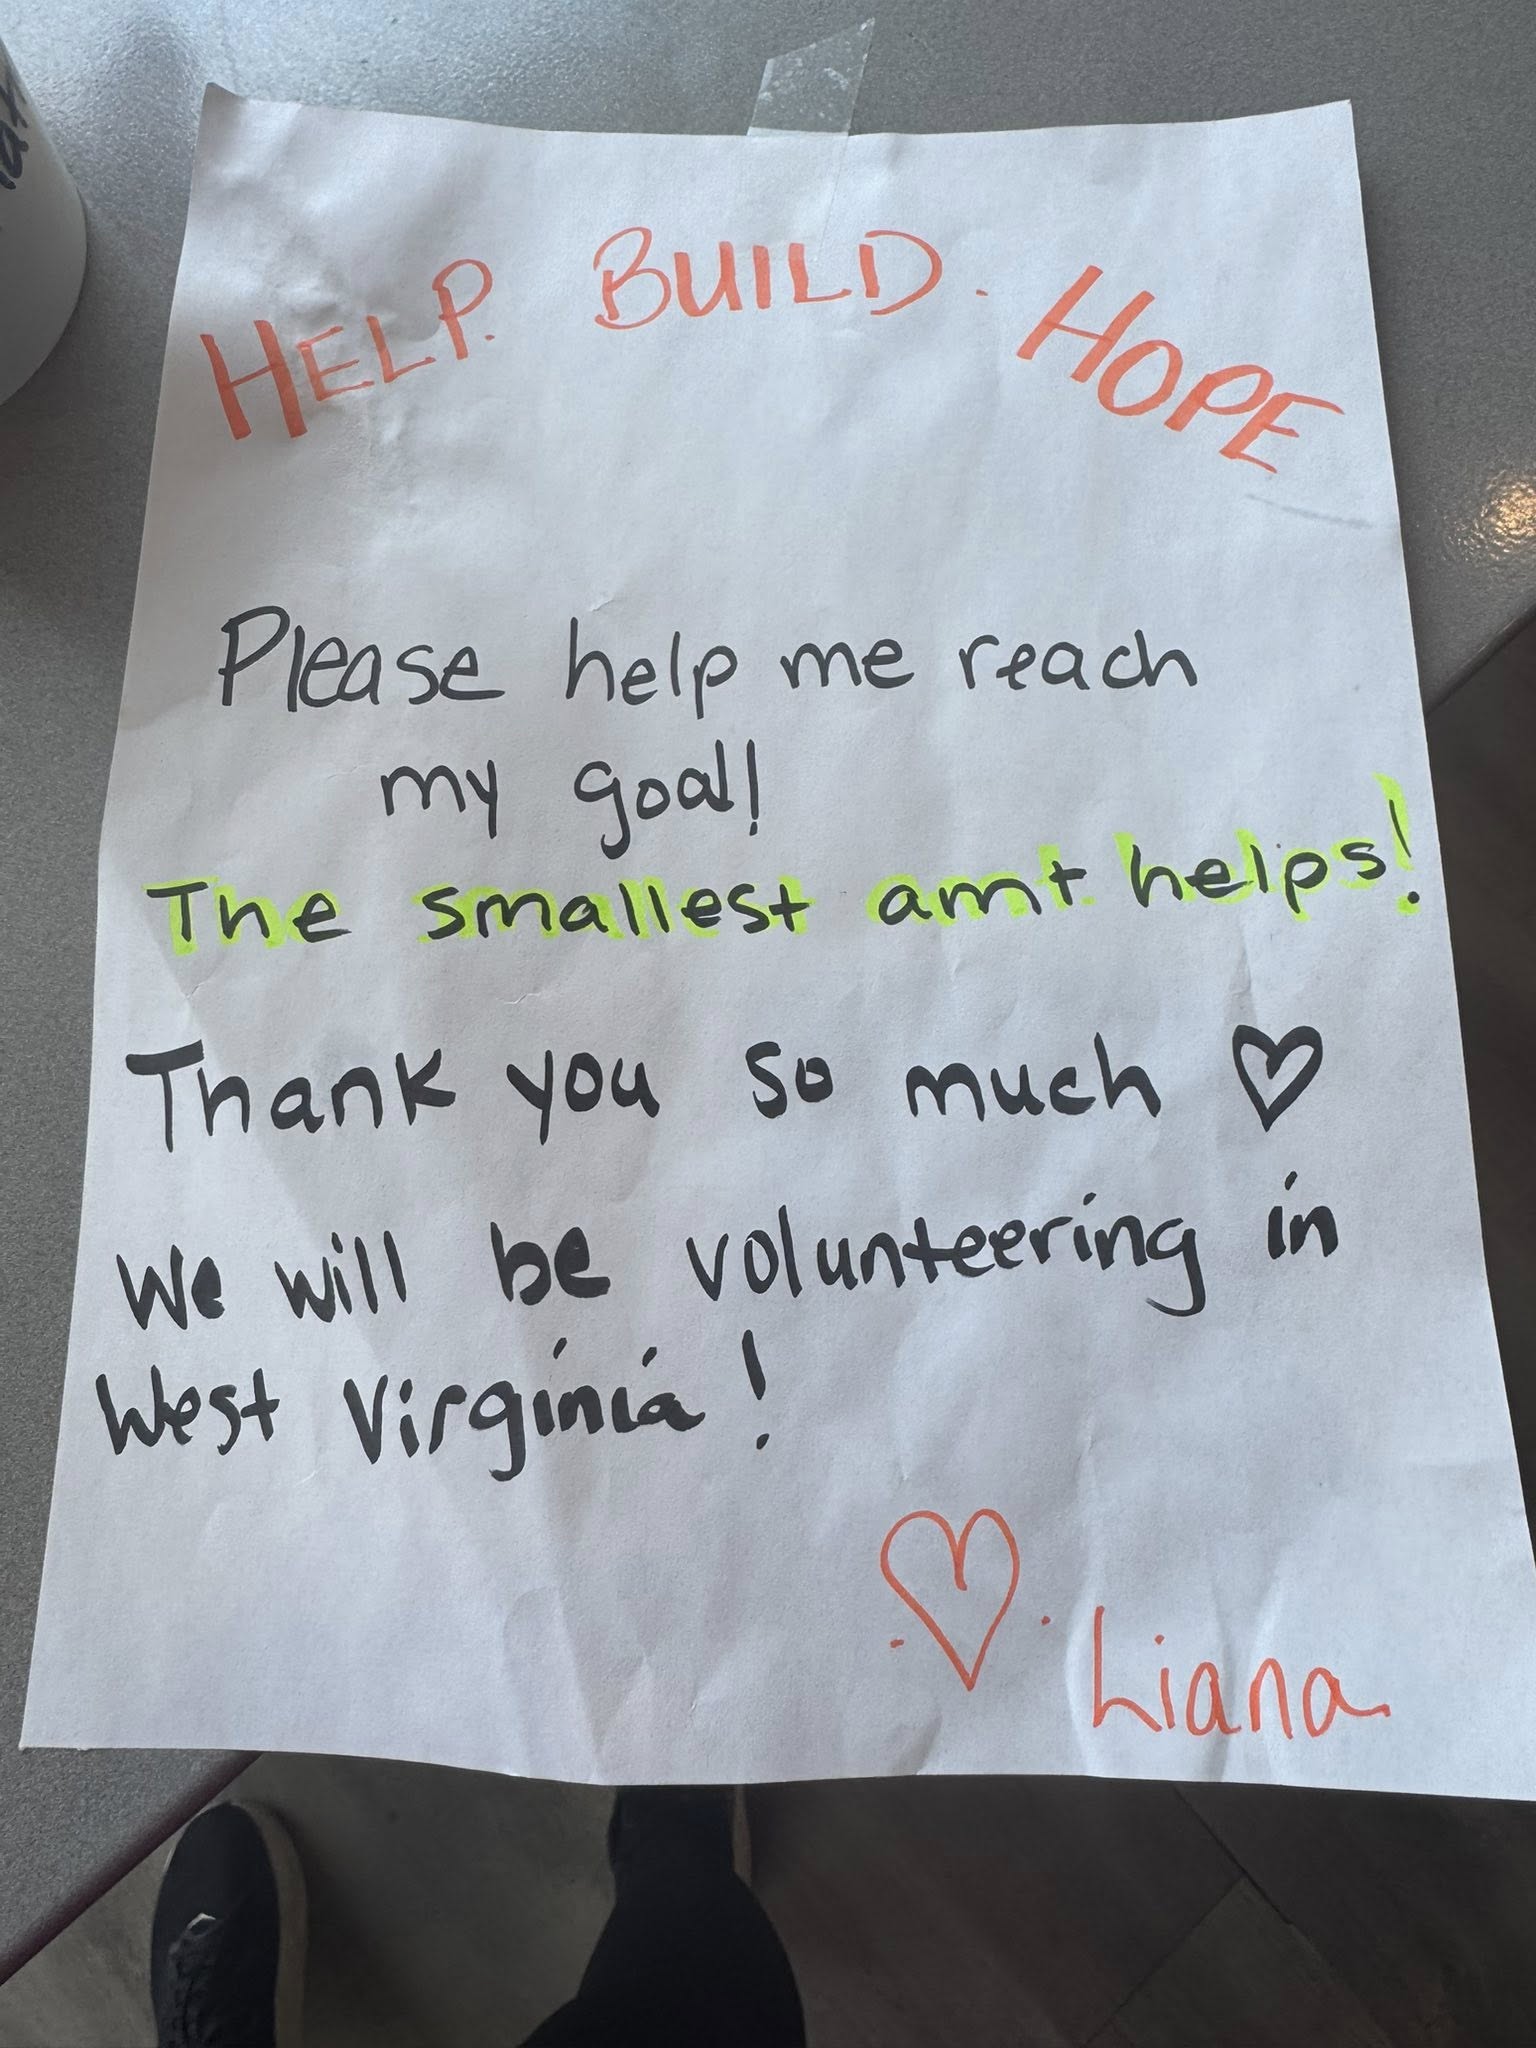 HELP. BUILD. HOPE
Please help me reach
my goal!
The smallest amt. helps!
Thank you so much ♡
We will be volunteering in
West Virginia!
♡ Liana